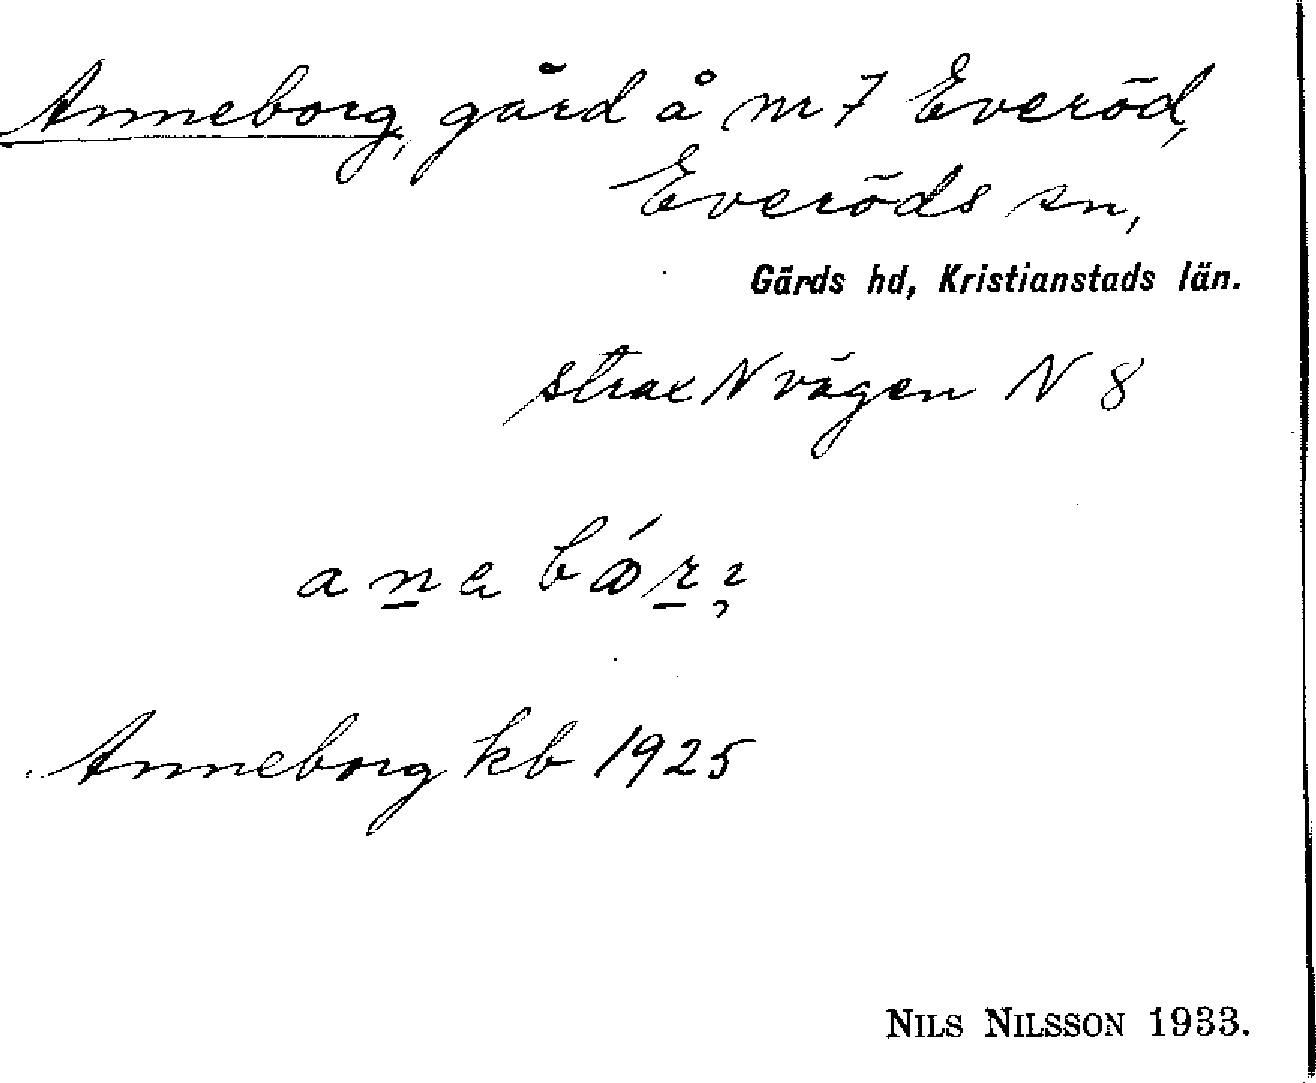 Anneborg, gård å nr 7 Everöd,
Everöds sn,
Gärds hd, Kristianstads län.
strax N vägen N 8
Anneborg kb 1925
NILS NILSSON 1933.